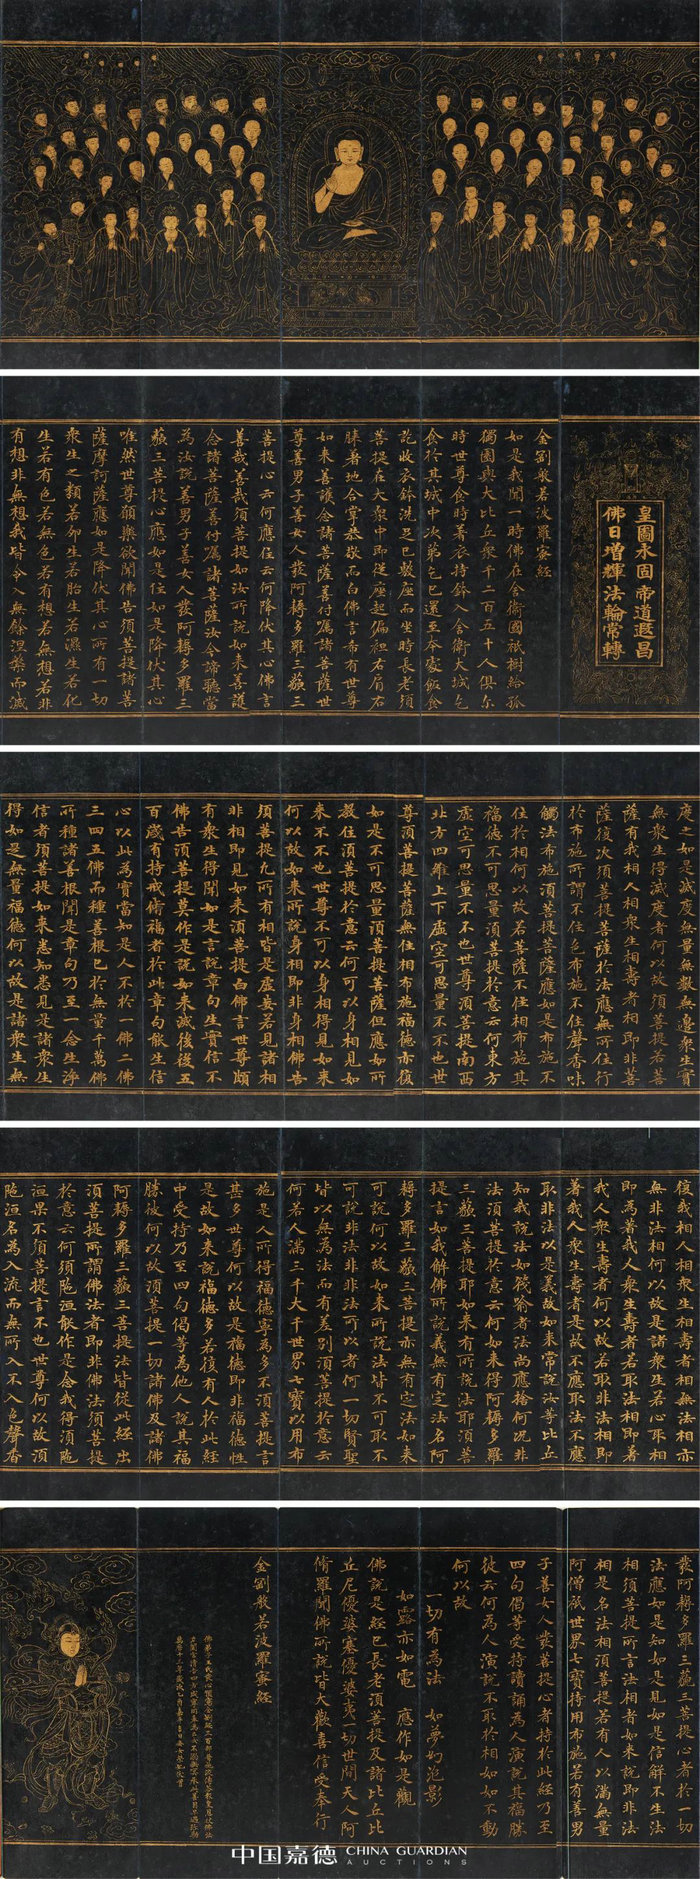 皇圖永固帝道遐昌
佛日增輝法輪常轉
金剛般若波羅蜜經
如是我聞一時佛在舍衛國祇樹給孤
獨園與大比丘衆千二百五十人俱爾
時世尊食時著衣持鉢入舍衛大城乞
食於其城中次第乞已還至本處飯食
訖收衣鉢洗足已敷座而坐時長老須
菩提在大衆中即從座起偏袒右肩右
膝著地合掌恭敬而白佛言希有世尊
如來善護念諸菩薩善付囑諸菩薩世
尊善男子善女人發阿耨多羅三藐三
菩提心云何應住云何降伏其心佛言
善哉善哉須菩提如汝所說如來善護
念諸菩薩善付囑諸菩薩汝今諦聽當
為汝說善男子善女人發阿耨多羅三
藐三菩提心應如是住如是降伏其心
唯然世尊願樂欲聞佛告須菩提諸菩
薩摩訶薩應如是降伏其心所有一切
衆生之類若卵生若胎生若濕生若化
生若有色若無色若有想若無想若非
有想非無想我皆令入無餘涅槃而滅
度之如是滅度無量無數無邊衆生實
無衆生得滅度者何以故須菩提若菩
薩有我相人相衆生相壽者相即非菩
薩復次須菩提菩薩於法應無所住行
於布施所謂不住色布施不住聲香味
觸法布施須菩提菩薩應如是布施不
住於相何以故若菩薩不住相布施其
福德不可思量須菩提於意云何東方
虛空可思量不不也世尊須菩提南西
北方四維上下虛空可思量不不也世
尊須菩提菩薩無住相布施福德亦復
如是不可思量須菩提菩薩但應如所
教住須菩提於意云何可以身相見如
來不不也世尊不可以身相得見如來
何以故如來所說身相即非身相佛告
須菩提凡所有相皆是虛妄若見諸相
非相即見如來須菩提白佛言世尊頗
有衆生得聞如是言說章句生實信不
佛告須菩提莫作是說如來滅後後五
百歲有持戒修福者於此章句能生信
心以此為實當知是人不於一佛二佛
三四五佛而種善根已於無量千萬佛
所種諸善根聞是章句乃至一念生淨
信者須菩提如來悉知悉見是諸衆生
得如是無量福德何以故是諸衆生無
復我相人相衆生相壽者相無法相亦
無非法相何以故是諸衆生若心取相
即為著我人衆生壽者若取法相即著
我人衆生壽者何以故若取非法相即
著我人衆生壽者是故不應取法不應
取非法以是義故如來常說汝等比丘
知我說法如筏喻者法尚應捨何況非
法須菩提於意云何如來得阿耨多羅
三藐三菩提耶如來有所說法耶須菩
提言如我解佛所說義無有定法名阿
耨多羅三藐三菩提亦無有定法如來
可說何以故如來所說法皆不可取不
可說非法非非法所以者何一切賢聖
皆以無為法而有差別須菩提於意云
何若人滿三千大千世界七寶以用布
施是人所得福德寧為多不須菩提言
甚多世尊何以故是福德即非福德性
是故如來說福德多若復有人於此經
中受持乃至四句偈等為他人說其福
勝彼何以故須菩提一切諸佛及諸佛
阿耨多羅三藐三菩提法皆從此經出
須菩提所謂佛法者即非佛法須菩提
於意云何須陁洹能作是念我得須陁
洹果不須菩提言不也世尊何以故須
陁洹名為入流而無所入不入色聲香
發阿耨多羅三藐三菩提心者於一切
法應如是知如是見如是信解不生法
相須菩提所言法相者如來說即非法
相是名法相須菩提若有人以滿無量
阿僧祇世界七寶持用布施若有善男
子善女人發菩提心者持於此經乃至
四句偈等受持讀誦為人演說其福勝
彼云何為人演說不取於相如如不動
何以故
一切有為法 如夢幻泡影
如露亦如電 應作如是觀
佛說是經已長老須菩提及諸比丘比
丘尼優婆塞優婆夷一切世間天人阿
修羅聞佛所說皆大歡喜信受奉行
金剛般若波羅蜜經
中国嘉德 CHINA GUARDIAN
AUCTIONS